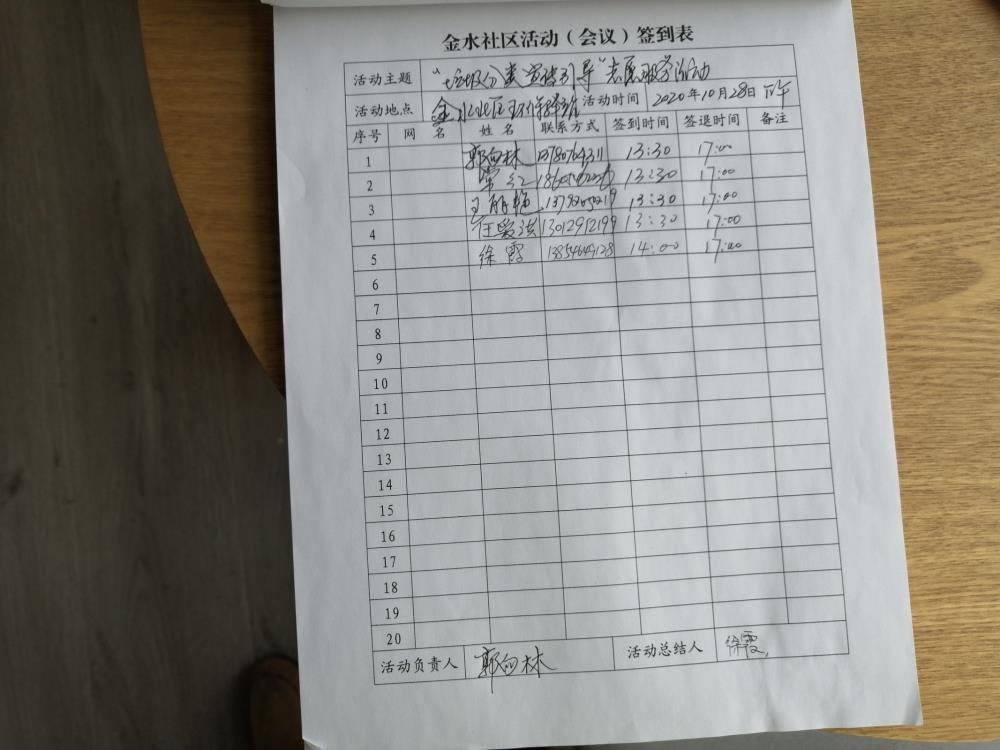 金水社区活动（会议）签到表
活动主题 “垃圾分类宣传引导”志愿服务活动
活动地点 金水社区环保驿站 活动时间 2020年10月28日 下午
序号 网 名 姓 名 联系方式 签到时间 签退时间 备注
1 郭向林 13:30 17:00
2 13:30 17:00
3 王丽艳 13:30 17:00
4 任爱洪 13012912199 13:30 17:00
5 徐霞 13854649128 14:00 17:00
6
7
8
9
10
11
12
13
14
15
16
17
18
19
20
活动负责人 郭向林 活动总结人 徐霞